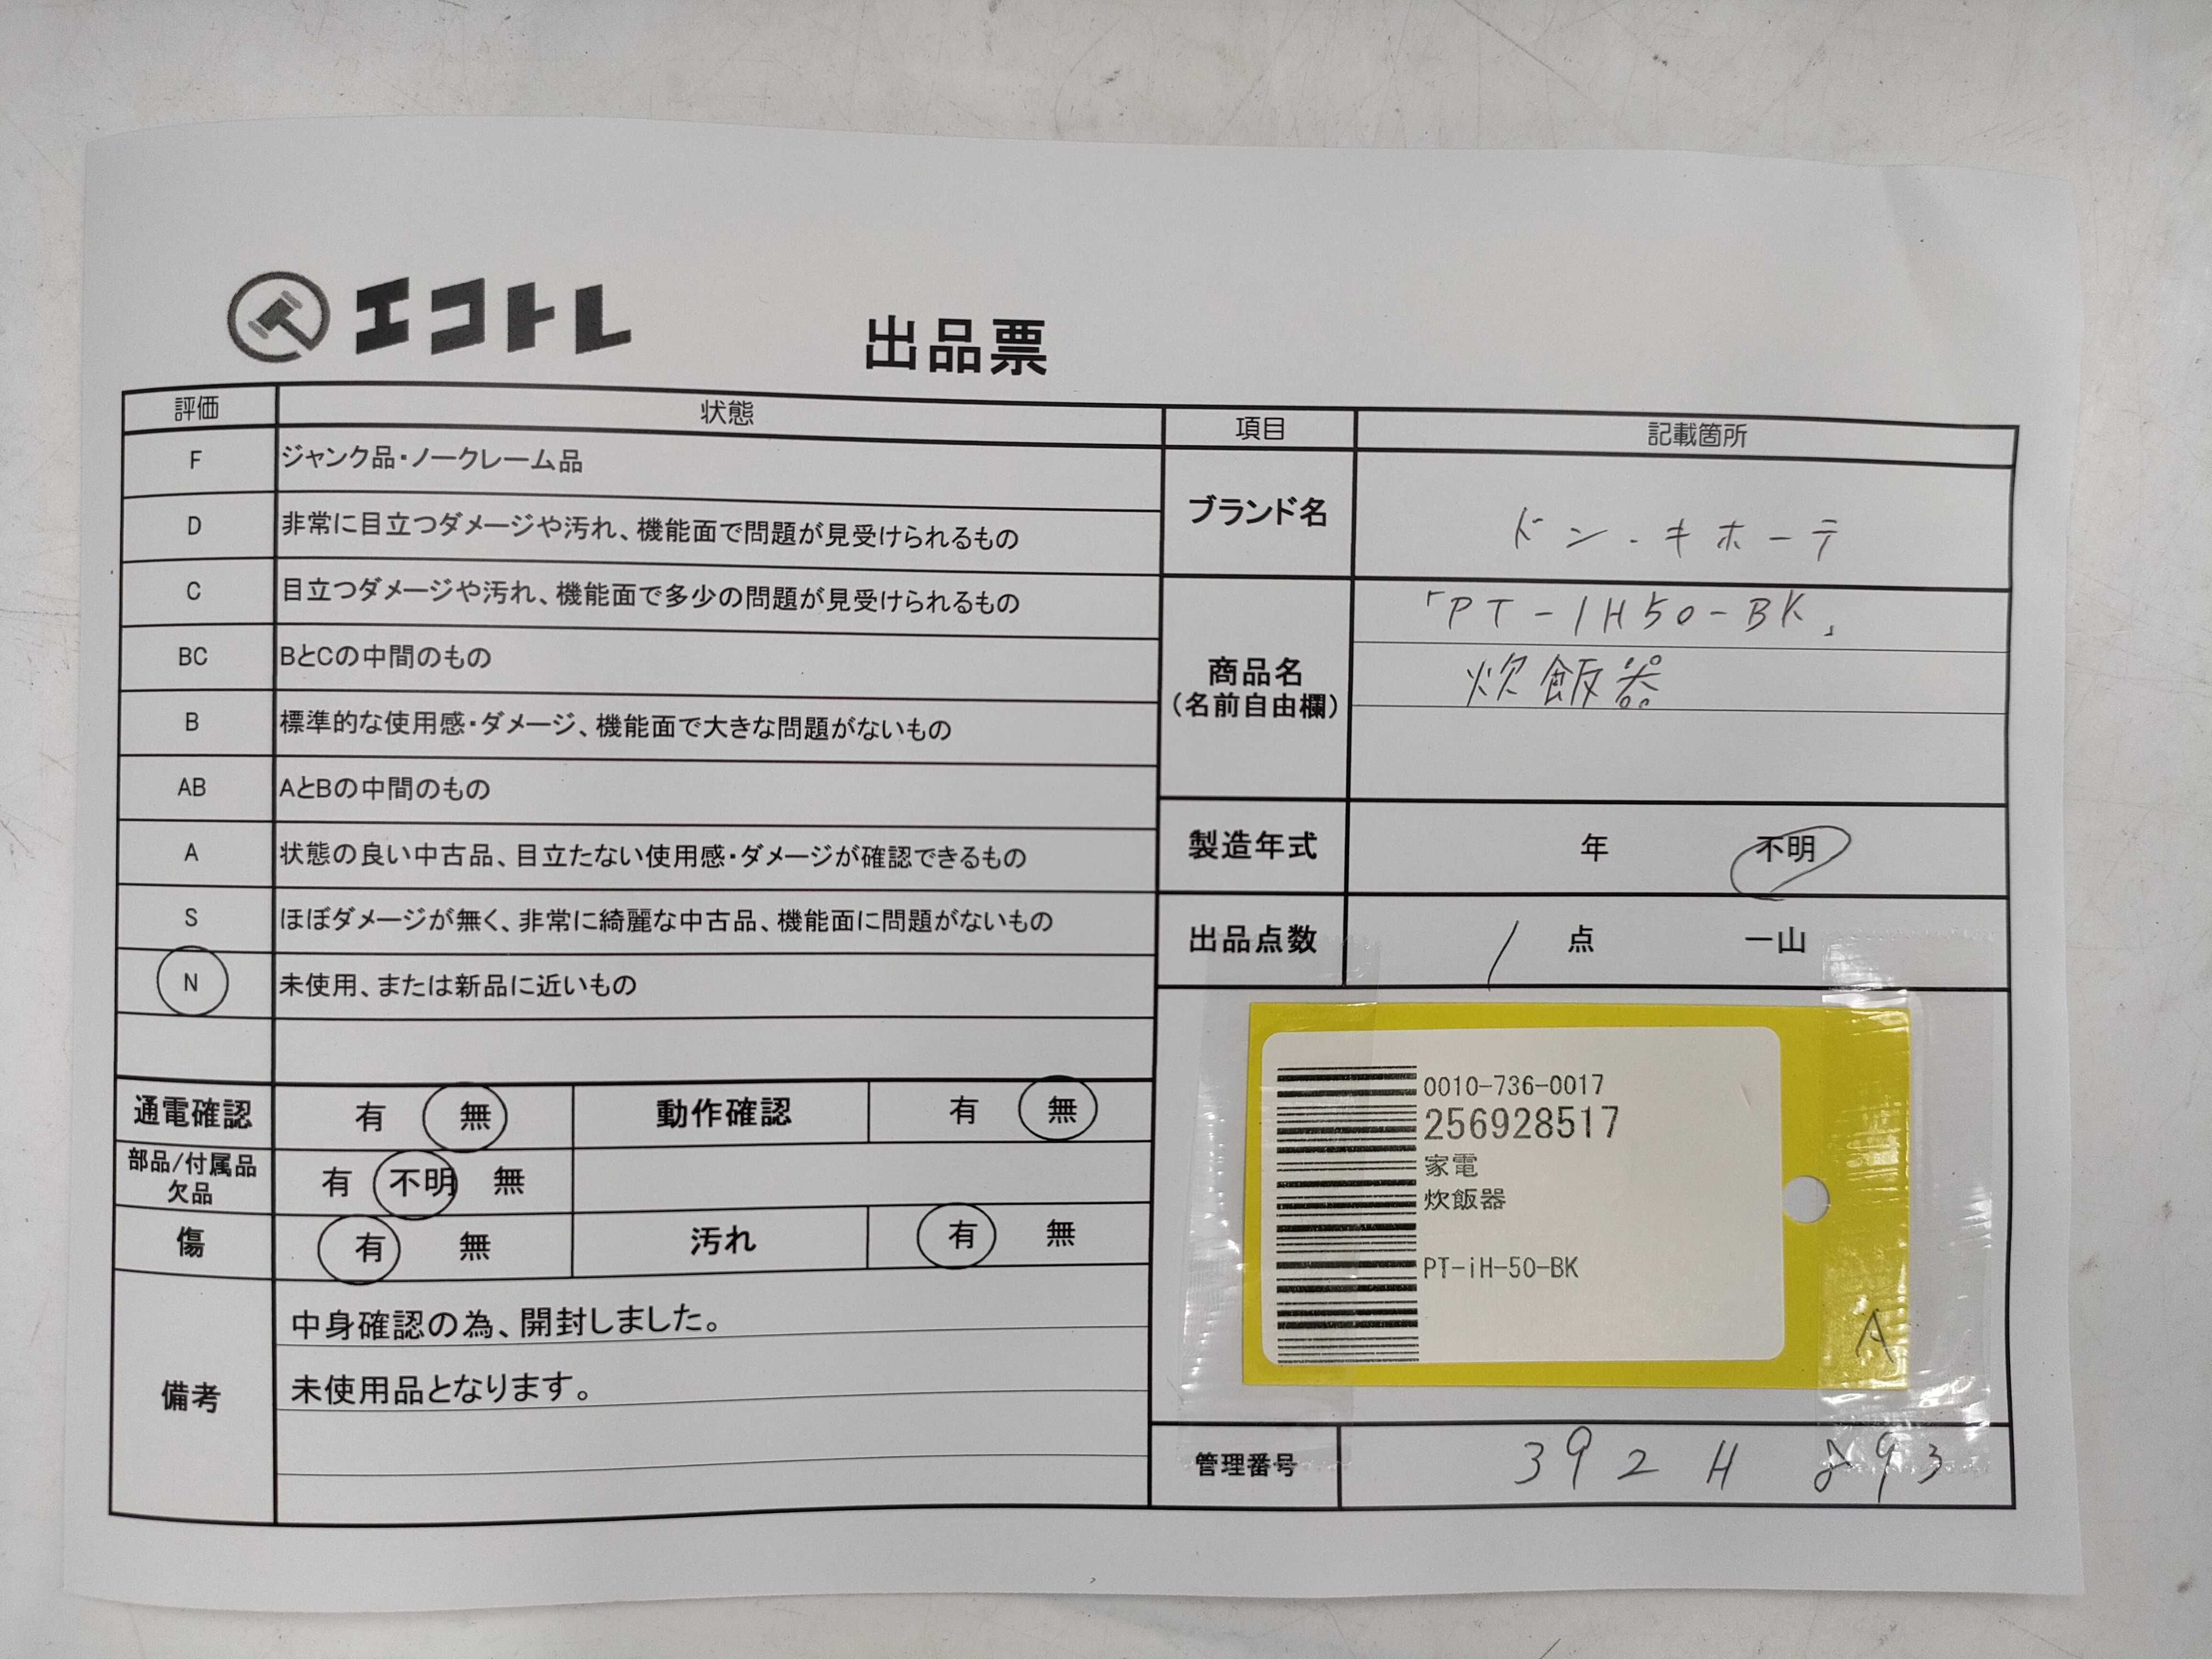 エコトレ
出品票
評価 状態
F ジャンク品・ノークレーム品
D 非常に目立つダメージや汚れ、機能面で問題が見受けられるもの
C 目立つダメージや汚れ、機能面で多少の問題が見受けられるもの
BC BとCの中間のもの
B 標準的な使用感・ダメージ、機能面で大きな問題がないもの
AB AとBの中間のもの
A 状態の良い中古品、目立たない使用感・ダメージが確認できるもの
S ほぼダメージが無く、非常に綺麗な中古品、機能面に問題がないもの
N 未使用、または新品に近いもの
通電確認 有 無 動作確認 有 無
部品/付属品
欠品 有 不明 無
傷 有 無 汚れ 有 無
備考
中身確認の為、開封しました。
未使用品となります。
項目 記載箇所
ブランド名 ドン・キホーテ
商品名
(名前自由欄)
「PT-IH50-BK」
炊飯器
製造年式 年 不明
出品点数 1 点 一山
0010-736-0017
256928517
家電
炊飯器
PT-iH-50-BK
A
管理番号 392 H 893